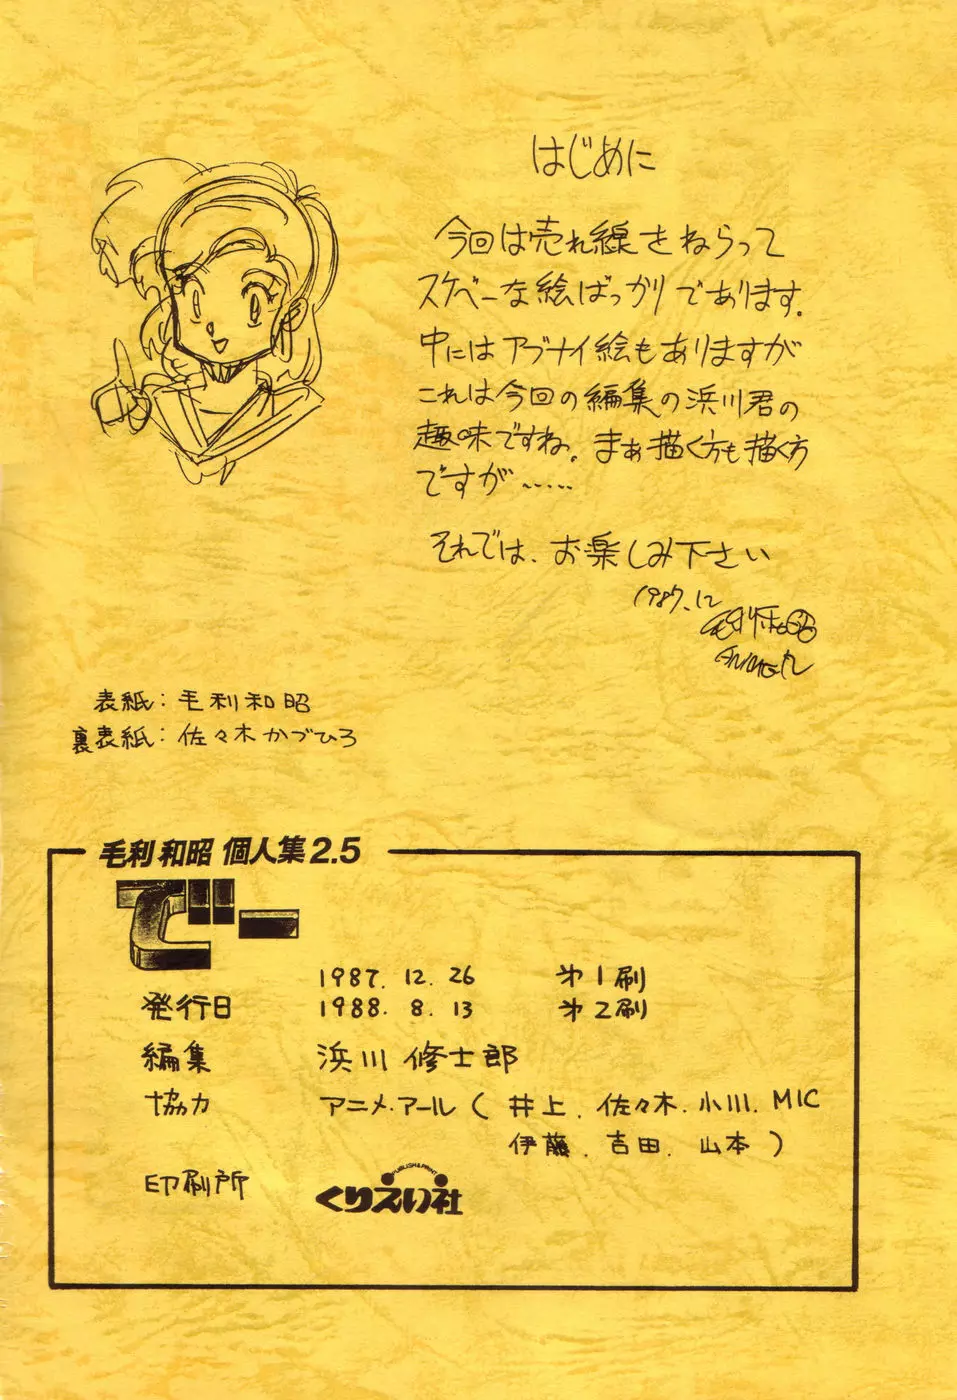 はじめに
今回は売れ線をねらって
スケベーな絵ばっかりであります。
中にはアブナイ絵もありますが
これは今回の編集の浜川君の
趣味ですね。まぁ描く方も描く方
ですが……
それでは、お楽しみ下さい
1987.12
毛利和昭
表紙：毛利和昭
裏表紙：佐々木かづひろ
毛利和昭 個人集2.5
でー
1987. 12. 26 第1刷
発行日 1988. 8. 13 第2刷
編集 浜川修士郎
協力 アニメ・アール（井上．佐々木．小川．MIC
伊藤．吉田．山本）
PUBLISH & PRINT
印刷所 くりえい社